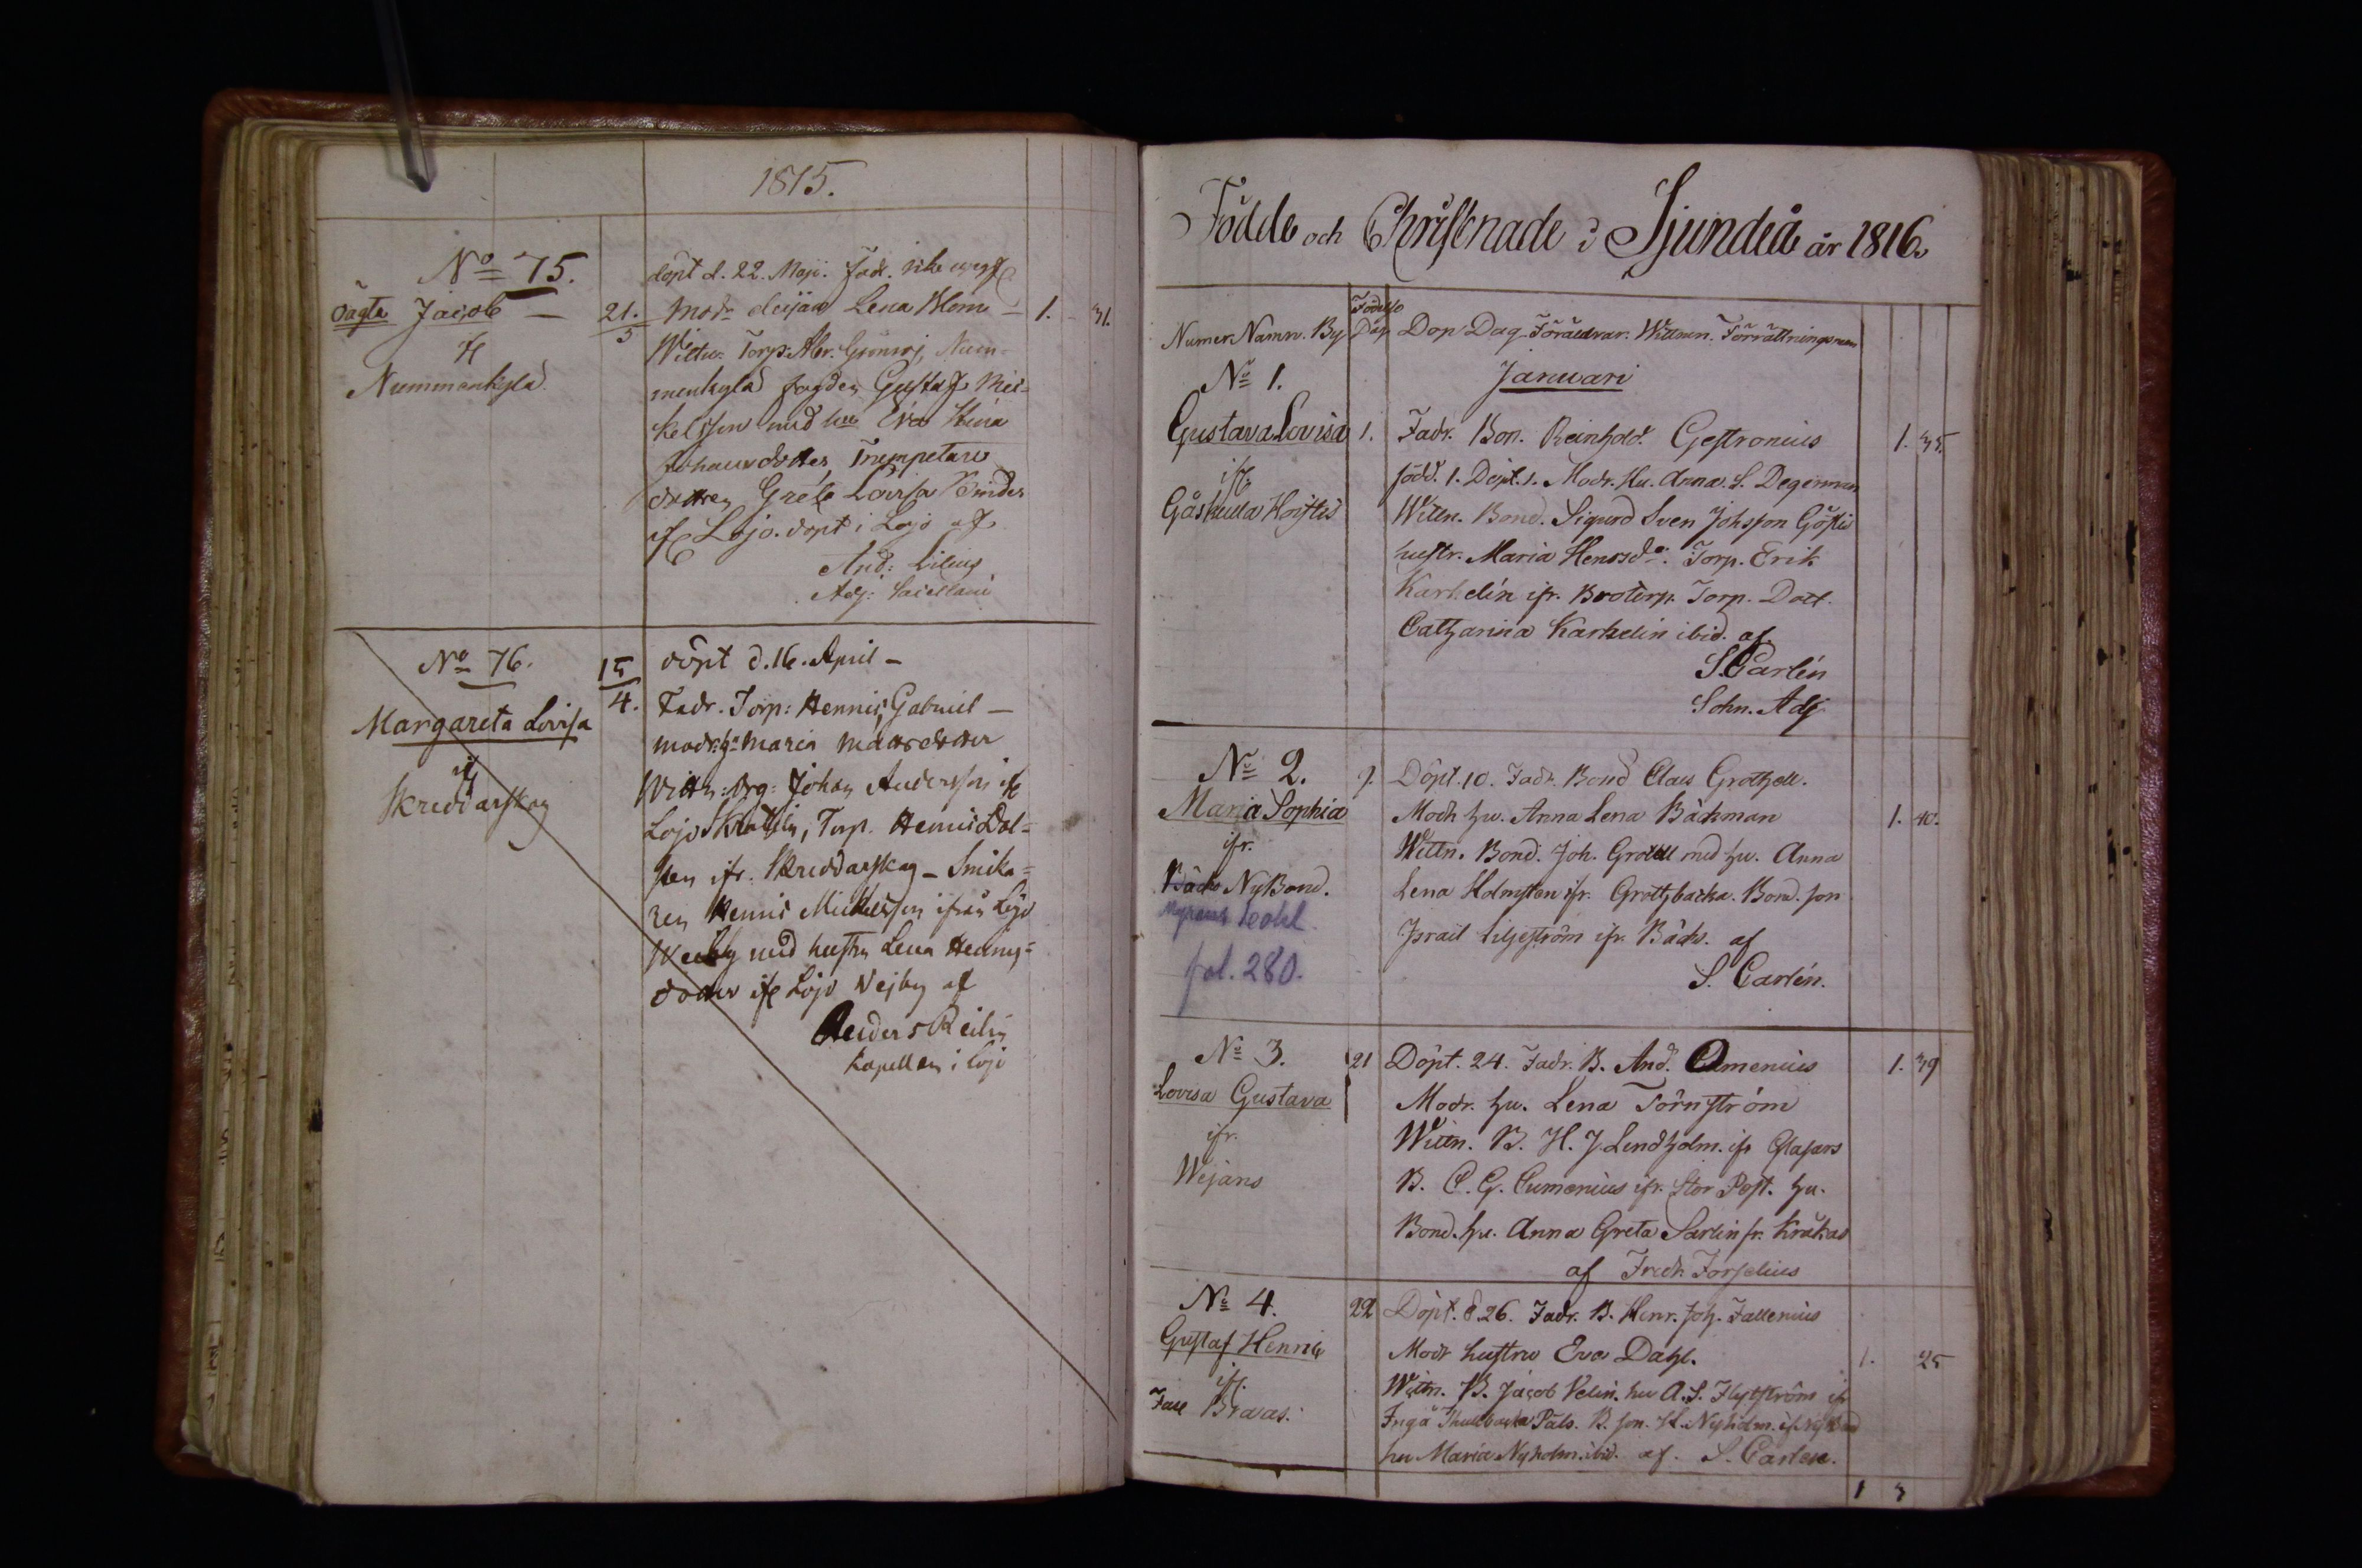 1815.
No 75.
oägta Jacob
Nummenkylä
21.
5
döpt d. 22. Maji. Fadr.
Modr Lena Blom
1. 31.
Wittn. Torp: Num-
menkylä fogden Gustaf Mic-
kelsson med hu Eva Stina
Johansdotter Trumpetare
dottren Greta Lovisa
if Lojo. döpt i Lojo af
And: Lilius
Adj: Sacellani
No 76.
Margareta Lovisa
ifr
Skreddarskog
15
4.
döpt d. 16. April -
Fadr. Torp: Hennis Gabriel -
modr: Maria Matsdotter
Wittn: Johan Andersson ifr
Lojo Torp. Hennis Dot-
ren ifr. Skreddarskog -
ren Hennis Mickelsson ifrån Lojo
med hustru Lena Henrics-
dotter ifr Lojo Wejby af
Anders Reilin
Kapellan i Lojo
Födde och Christnade i Sjundeå år 1816.
Numer. Namn. By
Födelse
Dag
Dop Dag. Föräldrar. Wittnen. Förrättningsman
Januari
No 1.
Gustava Lovisa
ifr.
Gåskulla
1.
Fadr. Bon. Reinhold Gestronius
1. 35.
född. 1. Döpt. 1. Modr. Hu. Anna. S. Degerman
Wittn. Bond. Sigurd Sven Johsson
hustr. Maria Torp. Erik
Karhelin ifr. Torp. Dott.
Catharina Karhelin ibid. af.
S. Carlén
Sohn. Adj
No 2.
Maria Sophia
ifr.
Bäcks NyBond.
fol. 280.
9.
Döpt. 10. Fadr. Bond Claes Grothell.
Modr hu. Anna Lena Bäckman
1. 40.
Wittn. Bond. Joh. Grotell med hu. Anna
Lena Holmsten ifr. Grottbacka. Bond. son
Israil Liljeström ifr. Bäcks. af
S. Carlén.
No 3.
Lovisa Gustava
ifr.
Wejans
21
Döpt. 24. Fadr. B. And. Cumenius
1. 39
Modr. hu. Lena Törnström
Wittn. B. H. J. Lendholm. ifr
B. C. G. Cumenius ifr. Stor Post. hu.
Bond. hu. Anna Greta Sarlin fr. Kråkas
af Fredr. Forselius
No 4.
Gustaf Henric
ifr.
22
Döpt. d. 26. Fadr. B. Henr. Joh. Fallenius
Modr hustru Eva Dahl.
1. 25
Wittn. B. Jacob Velin. hu A. S. Flytström ifr
Ingå Påls. B. son. H. Nyholm.
hu Maria Nyholm. ibid. af. S. Carlen.
1 3